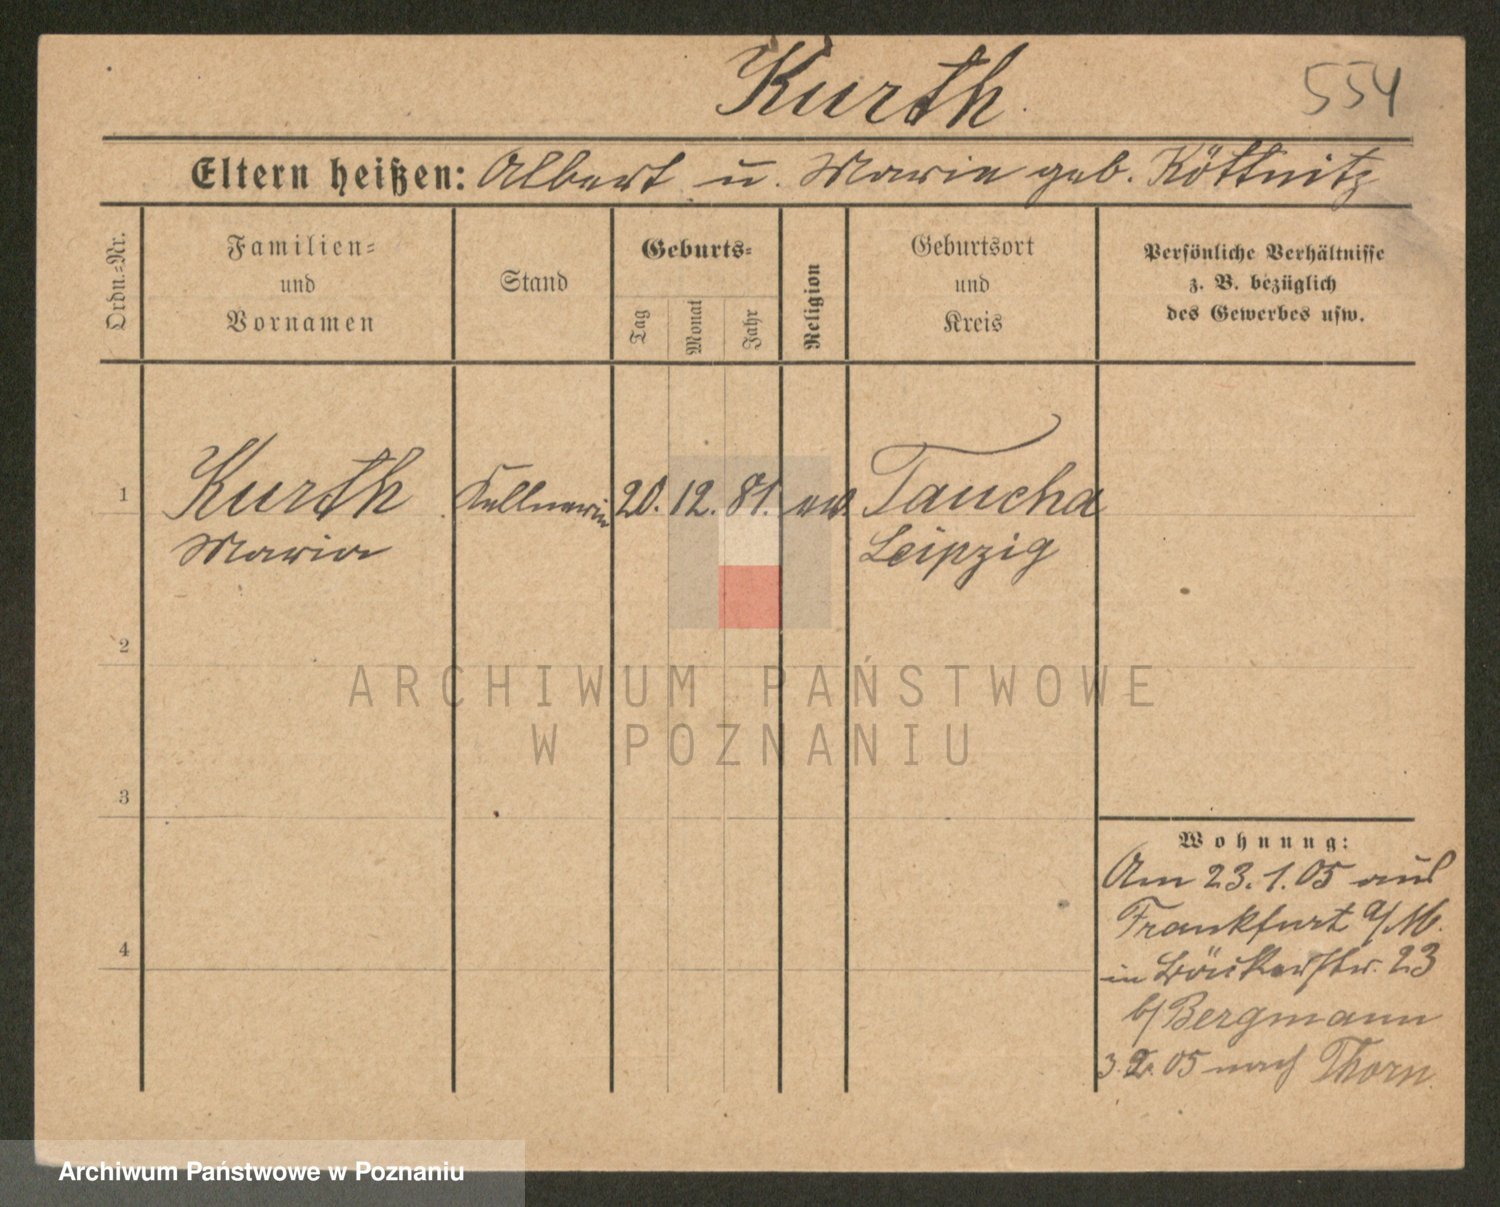 Kurth.
554
Eltern heißen: Albert u. Marie geb. Köttnitz
Ordn.=Nr.
Familien=
und
Vornamen
Stand
Geburts=
Tag
Monat
Jahr
Religion
Geburtsort
und
Kreis
Persönliche Verhältnisse
z. B. bezüglich
des Gewerbes usw.
1 Kurth Kellnerin 20. 12. 81. ev. Taucha
Maria Leipzig
2
3
4
Wohnung:
Am 23.1.05 aus
Frankfurt a/M.
in Bäckerstr. 23
b/ Bergmann
3.2.05 nach Thorn.
ARCHIWUM PAŃSTWOWE
W POZNANIU
Archiwum Państwowe w Poznaniu